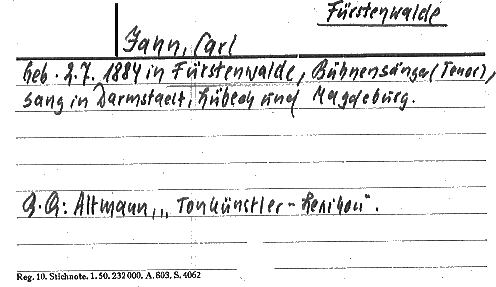 Fürstenwalde
Jahn, Carl
Geb. 2.7. 1884 in Fürstenwalde, Bühnensänger (Tenor),
sang in Darmstadt, Lübeck und Magdeburg.
Q.Q: Altmann, „Tonkünstler-Lexikon".
Reg. 10. Stichnote. 1. 50. 232 000. A. 803. S. 4062